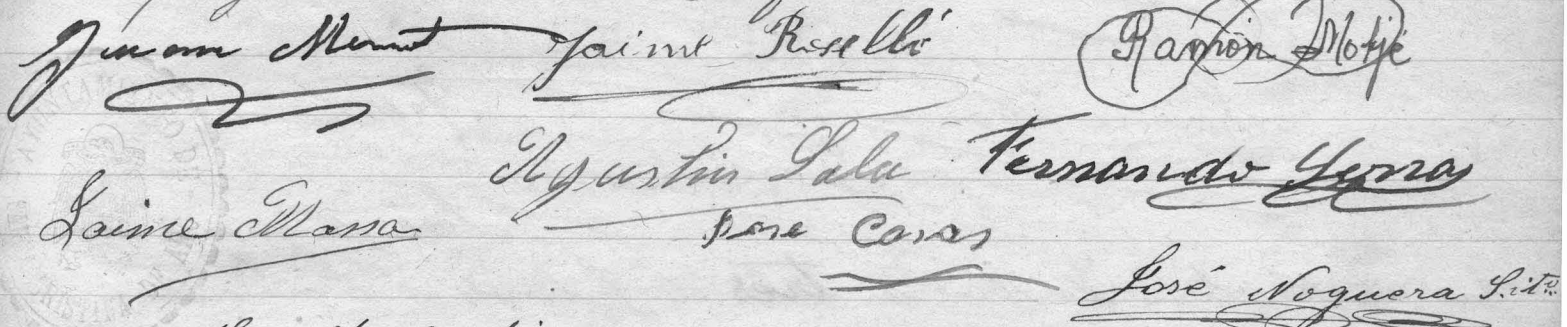 Juan Jaime Roselló Ramón Motjé
Agustin Sala Fernando
Jaime Massa Jose Casas
José Noguera S.itº